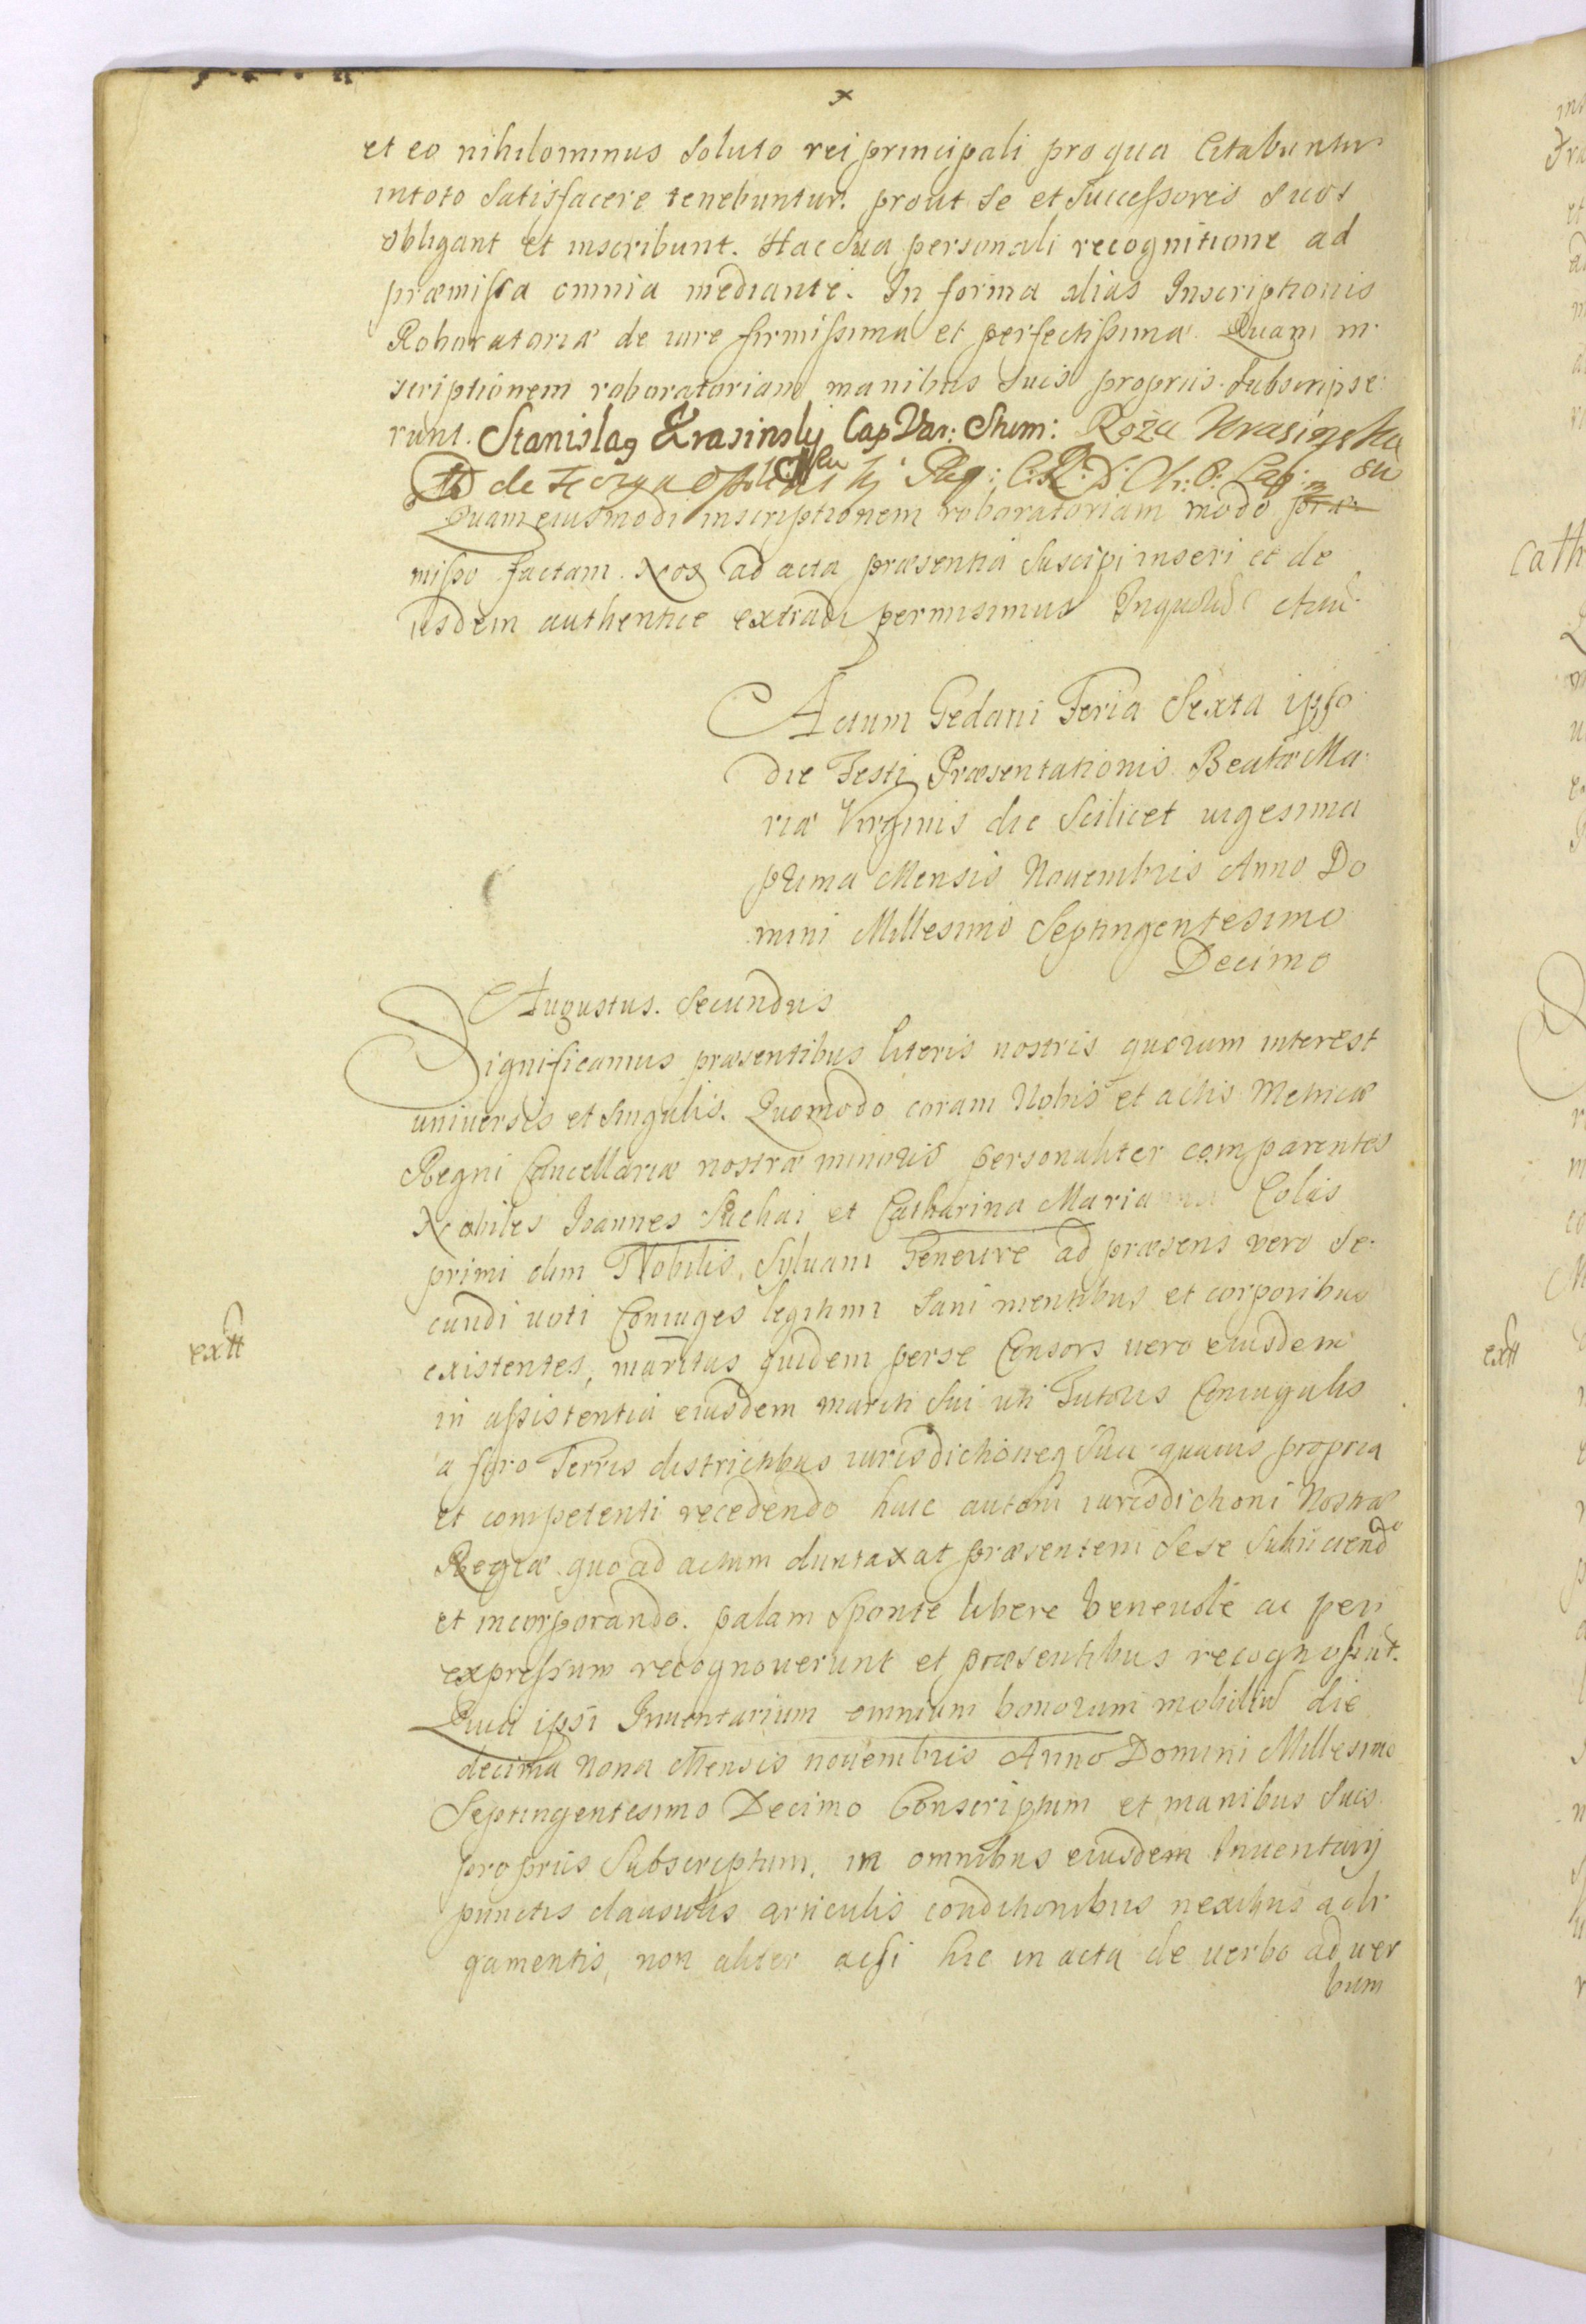 x
et eo nihilominus soluto rei principali pro qua Citabuntur
intoto satisfacere tenebuntur. prout se et Successores suos
obligant et inscribunt. Hac sua personali recognitione ad
præmissa omnia mediante. In forma alias Inscriptionis
Roboratoriæ de iure firmissima et perfectissima. Quam in
scriptionem roboratoriam manibus suis propriis subscripse
runt. Stanislag Krasinsky Cap Var: Shim: Roża Krasięska
de
Quam eiusmodi inscriptionem roboratoriam modo præ
misso factam. Nos ad acta præsentia suscipi inseri et de
iisdem authentice extradi permisimus
Actum Gedani Feria Sexta ipso
die Festi Præsentationis Beatæ Ma
riæ Virginis die Scilicet uigesima
prima Mensis Nouembris Anno Do
mini Millesimo Septingentesimo
Decimo
Augustus Secundus
Significamus præsentibus literis nostris quorum interest
uniuersis et singulis. Quomodo coram Nobis et actis Metricæ
Regni Cancellariæ nostræ minoris personaliter comparentes
Nobiles Ioannes Suchai et Catharina Marianna Colais
primi olim Nobilis Syluani Geneure ad præsens vero se
cundi uoti Coniuges legitimi sani mentibus et corporibus
extt
existentes, maritus quidem perse Consors uero eiusdem
in assistentia eiusdem mariti sui uti Tutoris Coniugalis
a foro Terris districtibus iurisdictioneq sua quauis propria
et competenti recedendo huic autem iurisdictioni Nostræ
Regiæ quo ad actum duntaxat præsentem sese subiiciendo
et incorporando. palam sponte libere beneuole ac per
expressum recognouerunt et præsentibus recognoscunt.
Quia ipsi Inuentarium omnium bonorum mobiliū die
decima nona Mensis nouembris Anno Domini Millesimo
Septingentesimo Decimo Conscriptum et manibus suis
propriis subscriptum, in omnibus eiusdem Inuentarij
punctis clausulis articulis conditionibus nexibus ac li
gamentis, non aliter acsi hic in acta de uerbo ad uer
bum